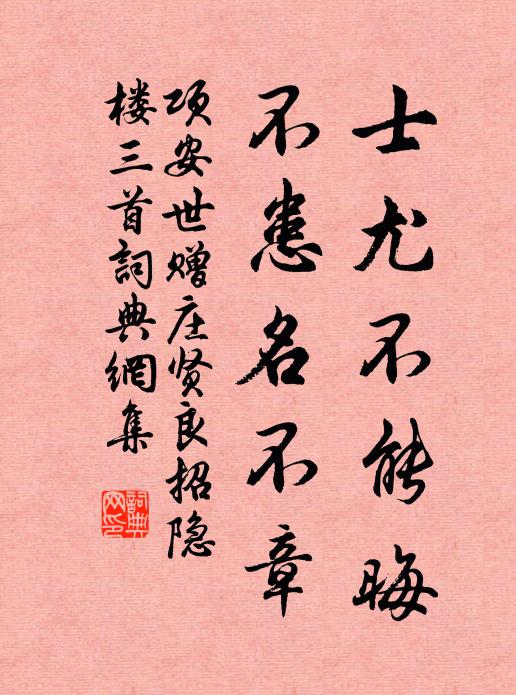 士尤不能晦
不患名不章
项安世赠庄贤良招隐
楼三首詞典網集
詞典
网印